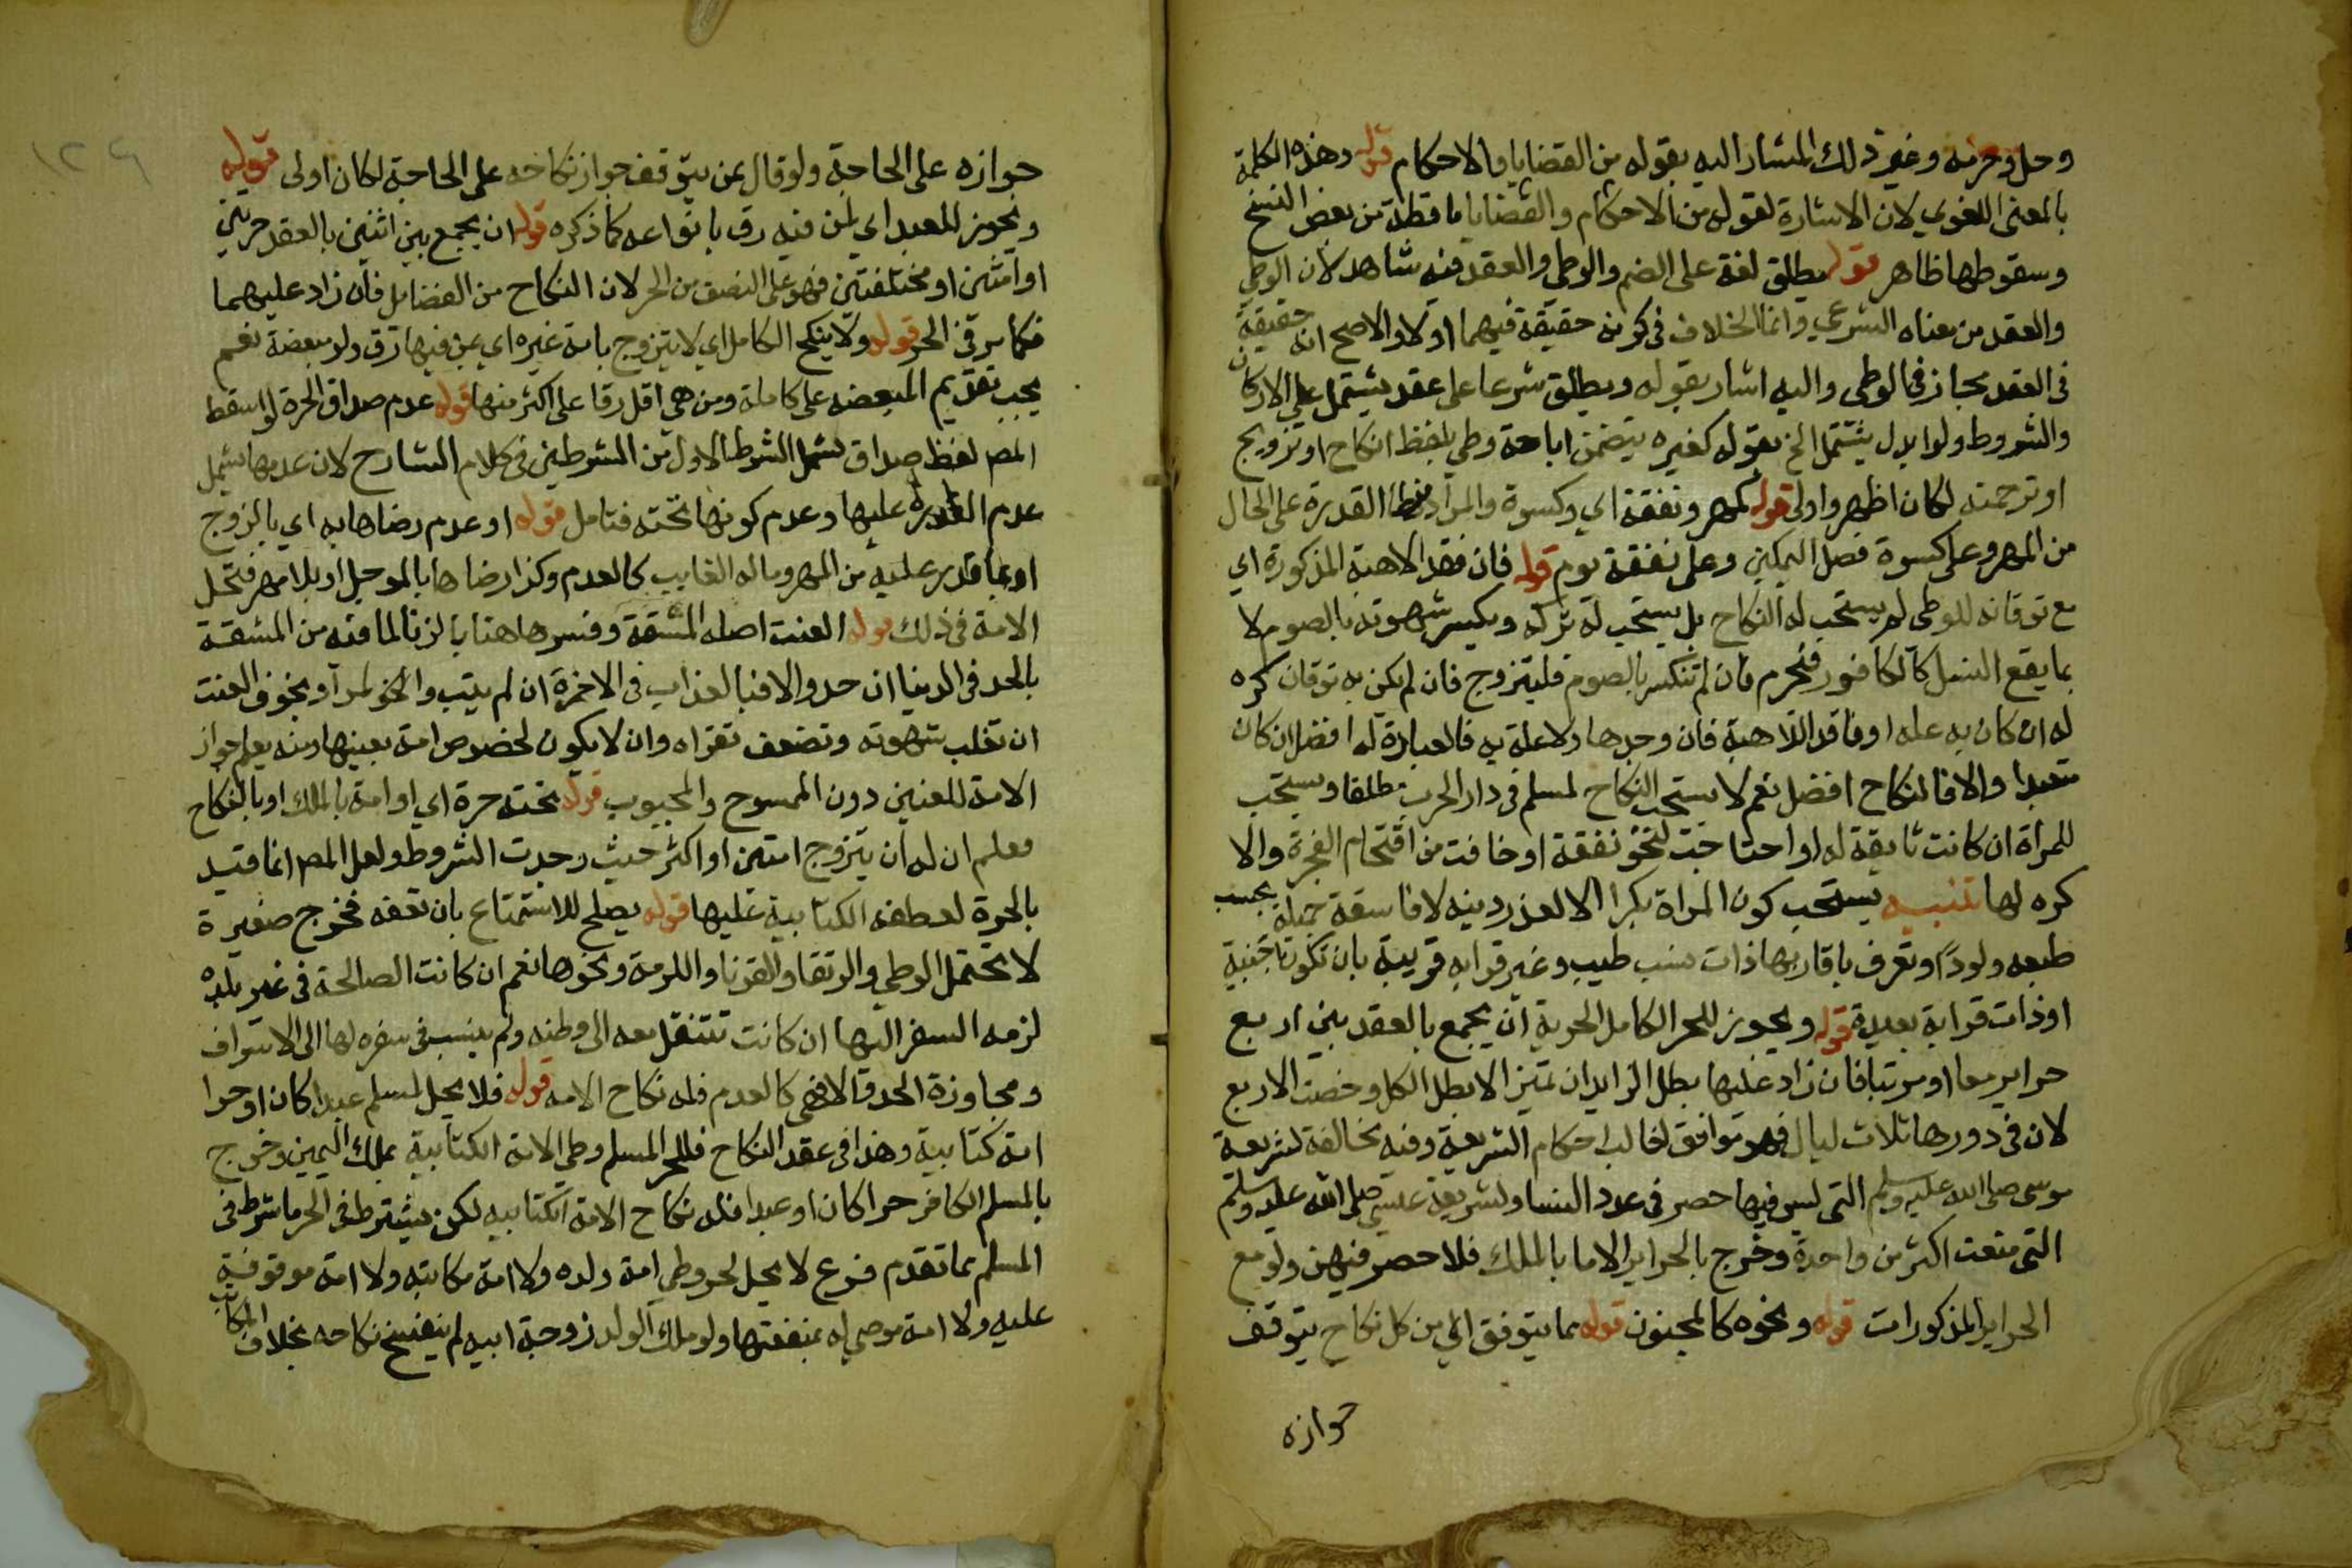 وحل وحرمة وغير ذلك المشار اليه بقوله من القضايا والاحكام قوله وهذه الكلمة
بالمعنى اللغوي لان الاشارة لقوله من الاحكام والقضايا ساقطة من بعض النسخ
وسقوطها ظاهر قوله يطلق لغة على الضم والوطى والعقد فيه شاهد لان الوطى
والعقد من معناه الشرعي وانما الخلاف فى كونه حقيقة فيهما اولا والاصح انه حقيقة
فى العقد مجاز فى الوطى واليه اشار بقوله ويطلق شرعا على عقد يشتمل على الاركان
والشروط ولو ابدل يشتمل الخ بقوله كغيره يتضمن اباحة وطي بلفظ انكاح او تزويج
او ترجمته لكان اظهر واولى قوله كمهر ونفقة اي وكسوة والمراد القدرة على الحال
من المهر وعلى كسوة فصل التمكين وعلى نفقة يوم قوله فان فقد الاهبة المذكورة اي
مع توقانه للوطى لم يستحب له النكاح بل يستحب له تركه ويكسر شهوته بالصوم لا
بما يقطع النسل كالكافور فيحرم فان لم تنكسر بالصوم فليتزوج فان لم يكن به توقان كره
له ان كان به علة او فاقد الاهبة فان وجدها ولا علة به فالعبادة له افضل ان كان
متعبدا والا فالنكاح افضل نعم لا يستحب النكاح لمسلم فى دار الحرب مطلقا ويستحب
للمراة ان كانت تايقة له او احتاجت لنحو نفقة او خافت من اقتحام الفجرة والا
كره لها تنبيه يستحب كون المراة بكرا الا لعذر دينه لا فاسقة جميلة بحسب
طبعه ولودا وتعرف باقاربها ذات نسب طيب وغير قرابه قريبة بان تكون اجنبية
او ذات قرابة بعيدة قوله ويجوز للحر الكامل الحرية ان يجمع بالعقد بين اربع
حراير معا او مرتبا فان زاد عليها بطل الزايد ان تميز الا بطل الكل وخصت الاربع
لان فى دورها ثلاث ليال فهو موافق لغالب احكام الشريعة وفيه مخالفة لشريعة
موسى صلى الله عليه وسلم التى ليس فيها حصر فى عدد النسا ولشريعة عيسى صلى الله عليه وسلم
التى منعت اكثر من واحدة وخرج بالحراير الاما بالملك فلا حصر فيهن ولو مع
الحراير المذكورات قوله ونحوه كالمجنون قوله مما يتوقف اي من كل نكاح يتوقف
جوازه
جوازه على الحاجة ولو قال عن يتوقف جواز نكاحه على الحاجة لكان اولى قوله
ويجوز للعبد اي لمن فيه رق بانواعه كما ذكره قوله ان يجمع بين اثنين بالعقد حرتين
او امتين او مختلفتين فهو على النصف من الحر لان النكاح من الفضايل فان زاد عليهما
فكما مر فى الحر قوله ولا ينكح الكامل اي لا يتزوج بامة غيره اي بمن فيها رق ولو مبعضة نعم
يجب تقديم المبعضه على كاملة ومن هي اقل رقا على اكثر منها قوله عدم صداق الحرة لو اسقط
المص لفظ صداق لشمل الشرط الاول من الشرطين فى كلام الشارح لان عدمها يشمل
عدم القدرة عليها وعدم كونها تحته فتامل قوله او عدم رضاها به اي بالزوج
او بما قدر عليه من المهر وماله الغايب كالعدم وكذا رضاها بالموجل او بلا مهر فتحل
الامة فى ذلك قوله العنت اصله المشقة وفسر هاهنا بالزنا لما فيه من المشقة
بالحد فى الدنيا ان حد والا فبالعذاب فى الاخرة ان لم يتب والمراد بخوف العنت
ان تغلب شهوته وتضعف تقواه وان لا يكون لخصوص امة بعينها ومنه يعلم جواز
الامة للعنين دون الممسوح والمجبوب قوله تحته حرة اي او امة بالملك او بالنكاح
فعلم ان له ان يتزوج امتين او اكثر حيث وجدت الشروط ولعل المص انما قيد
بالحرة لعطف الكتابية عليها قوله يصلح للاستمتاع بان تعفه فخرج صغيرة
لا تحتمل الوطى والرتقا والقرنا والهرمة ونحوها نعم ان كانت الصالحة فى غير بلده
لزمه السفر اليها ان كانت تنتقل معه الى وطنه ولم ينسب فى سفره لها الى الاسراف
ومجاوزة الحد والا فهى كالعدم فله نكاح الامه قوله فلا يحل لمسلم عبدا كان او حرا
امة كتابية وهذا فى عقد النكاح فللحر المسلم وطى الامة الكتابية بملك اليمين وخرج
بالمسلم الكافر حرا كان او عبدا فله نكاح الامة الكتابيه لكن يشترط فى الحر ما شرط فى
المسلم مما تقدم فرع لا يحل لحر وطى امة ولده ولا امة مكاتبه ولا امة موقوفة
عليه ولا امة موصى له بمنفعتها ولو ملك الولد زوجة ابيه لم ينفسخ نكاحه بخلاف المكاتب